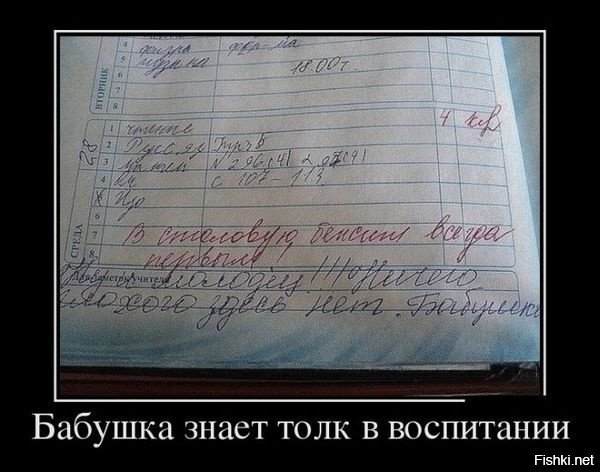 4 физра форма
5 музыка
6 18.00 г.
7
8
ВТОРНИК
28
1 чтение 4
2 Русс. яз
3 матем N 296(4) 297(4)
4 с 107-113
6
7 В столовую бежит всегда
8 первым
СРЕДА
молодец!!! Ничего
плохого здесь нет. Бабушка
Бабушка знает толк в воспитании
Fishki.net